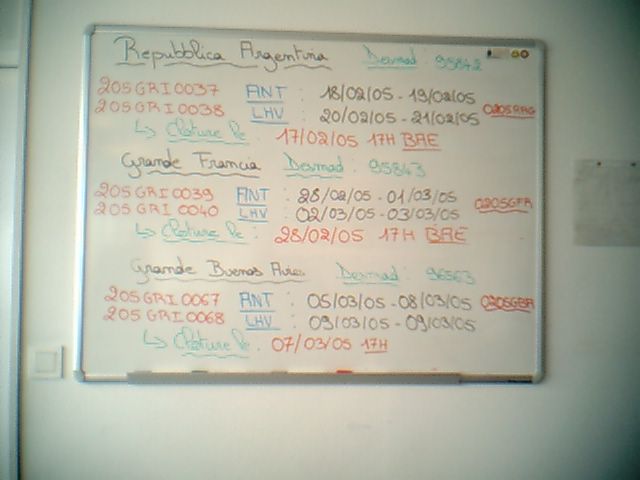 Repubblica Argentina Desmad : 95842
205GRI0037 ANT : 18/02/05 - 19/02/05
205GRI0038 LHV : 20/02/05 - 21/02/05 0205RAG
↳ Cloture le : 17/02/05 17H BAE
Grande Francia Desmad : 95843
205GRI0039 ANT : 28/02/05 - 01/03/05 0205GFR
205GRI0040 LHV : 02/03/05 - 03/03/05
↳ Cloture le : 28/02/05 17H BAE
Grande Buenos Aires Desmad : 96563
205GRI0067 ANT : 05/03/05 - 08/03/05 0205GBA
205GRI0068 LHV : 09/03/05 - 09/03/05
↳ Cloture le : 07/03/05 17H